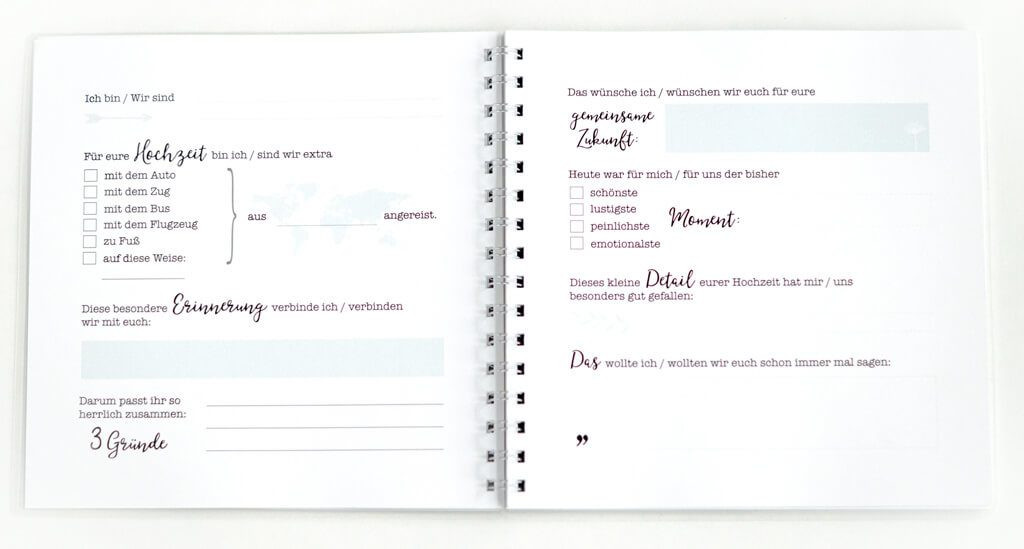 Ich bin / Wir sind
Für eure Hochzeit bin ich / sind wir extra
mit dem Auto
mit dem Zug
mit dem Bus
mit dem Flugzeug
zu Fuß
auf diese Weise:
aus angereist.
Diese besondere Erinnerung verbinde ich / verbinden
wir mit euch:
Darum passt ihr so
herrlich zusammen:
3 Gründe
Das wünsche ich / wünschen wir euch für eure
gemeinsame
Zukunft:
Heute war für mich / für uns der bisher
schönste
lustigste
peinlichste
emotionalste
Moment:
Dieses kleine Detail eurer Hochzeit hat mir / uns
besonders gut gefallen:
Das wollte ich / wollten wir euch schon immer mal sagen:
”